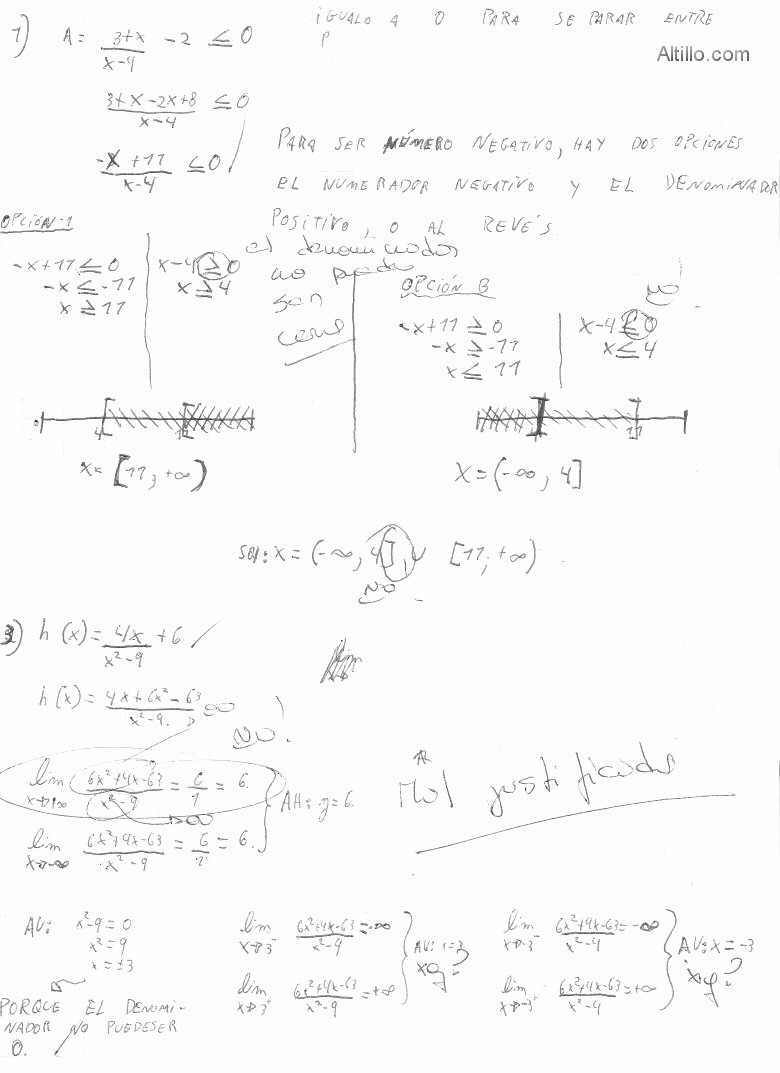 IGUALO A 0 PARA SEPARAR ENTRE
P
Altillo.com
1) A = (3+x)/(x-4) - 2 ≤ 0
(3+x-2x+8)/(x-4) ≤ 0
(-x+11)/(x-4) ≤ 0
PARA SER NÚMERO NEGATIVO, HAY DOS OPCIONES
EL NUMERADOR NEGATIVO Y EL DENOMINADOR
POSITIVO, O AL REVE'S
OPCIÓN-1
-x+11 ≤ 0
-x ≤ -11
x ≥ 11
x-4 ≥ 0
x ≥ 4
el denominador
no puede
ser
cero
OPCIÓN B
NO!
-x+11 ≥ 0
-x ≥ -11
x ≤ 11
x-4 ≤ 0
x ≤ 4
0 4 11
4 11
x = [11; +∞)
X = (-∞, 4]
sol: x = (-∞, 4] ∪ [11; +∞)
NO
3) h(x) = 4x/(x²-9) + 6
lim
h(x) = (4x+6x²-63)/(x²-9)
∞
NO!
lim x→+∞ (6x²+4x-63)/(x²-9) = 6/1 = 6
→∞
lim x→-∞ (6x²+4x-63)/(x²-9) = 6/1 = 6.
AH: y=6
Mal justificado
AV: x²-9=0
x²=9
x=±3
PORQUE EL DENOMI-
NADOR NO PUEDE SER
0.
lim x→3⁻ (6x²+4x-63)/(x²-9) = -∞
lim x→3⁺ (6x²+4x-63)/(x²-9) = +∞
AV: x=3
x q?
lim x→-3⁻ (6x²+4x-63)/(x²-4) = -∞
lim x→-3⁺ (6x²+4x-63)/(x²-9) = +∞
AV: x=-3
x q?